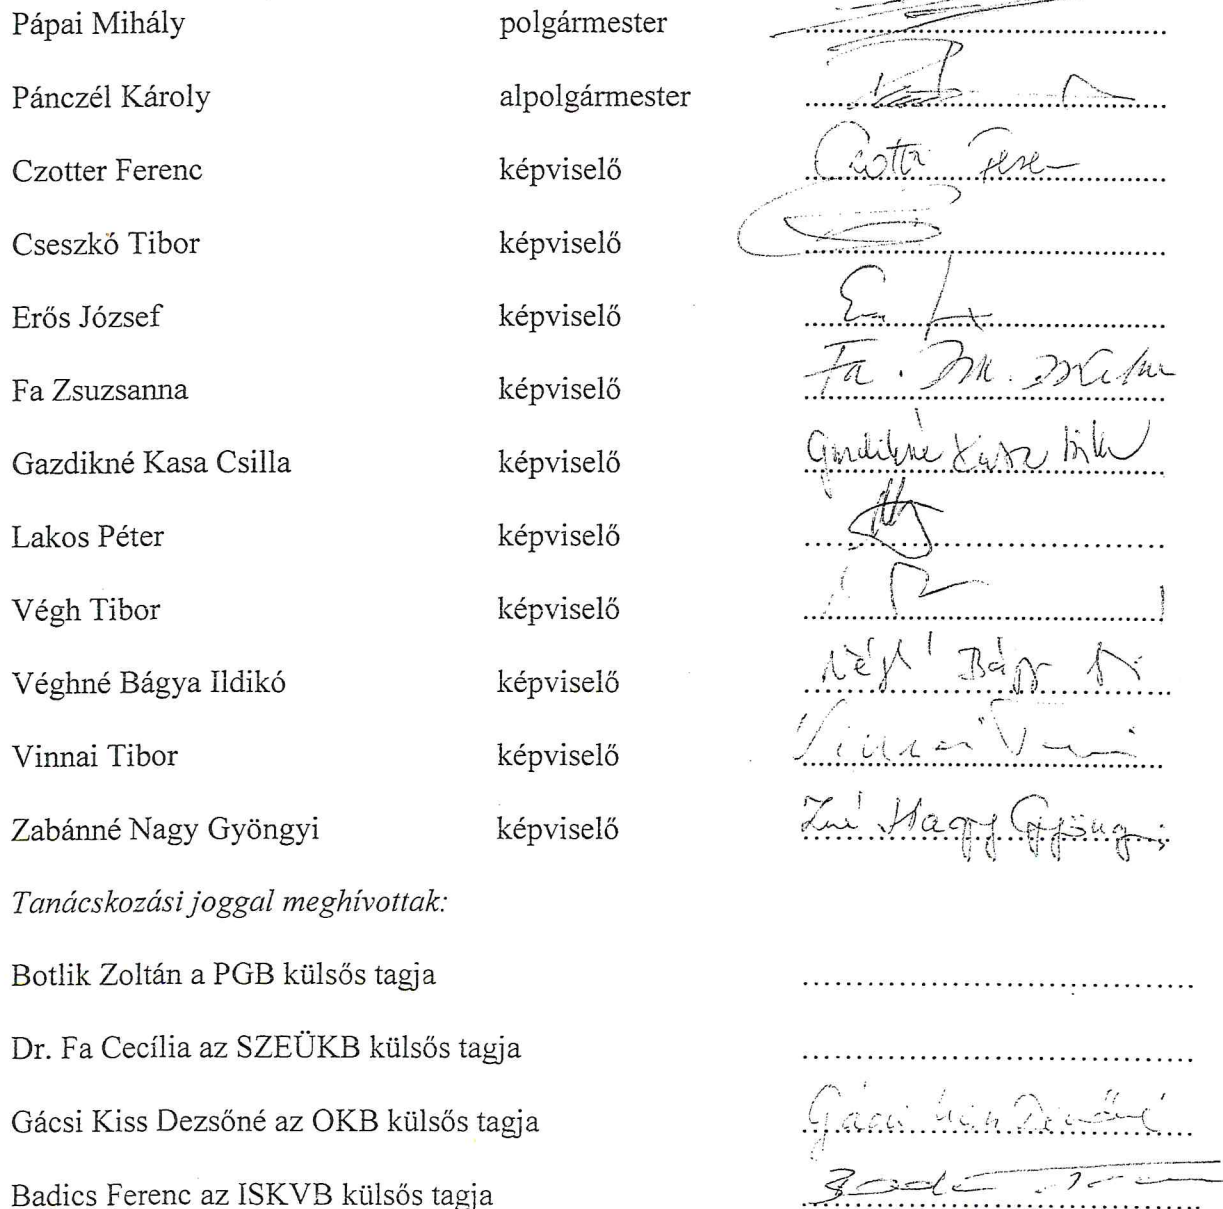 Pápai Mihály polgármester
Pánczél Károly alpolgármester
Czotter Ferenc képviselő Czotter Feren
Cseszkó Tibor képviselő
Erős József képviselő
Fa Zsuzsanna képviselő Fa
Gazdikné Kasa Csilla képviselő Gazdikné Kasa Csilla
Lakos Péter képviselő
Végh Tibor képviselő
Véghné Bágya Ildikó képviselő
Vinnai Tibor képviselő Vinnai
Zabánné Nagy Gyöngyi képviselő Zné Nagy Gyöngyi
Tanácskozási joggal meghívottak:
Botlik Zoltán a PGB külsős tagja
Dr. Fa Cecília az SZEÜKB külsős tagja
Gácsi Kiss Dezsőné az OKB külsős tagja Gácsi Kiss Dezsőné
Badics Ferenc az ISKVB külsős tagja